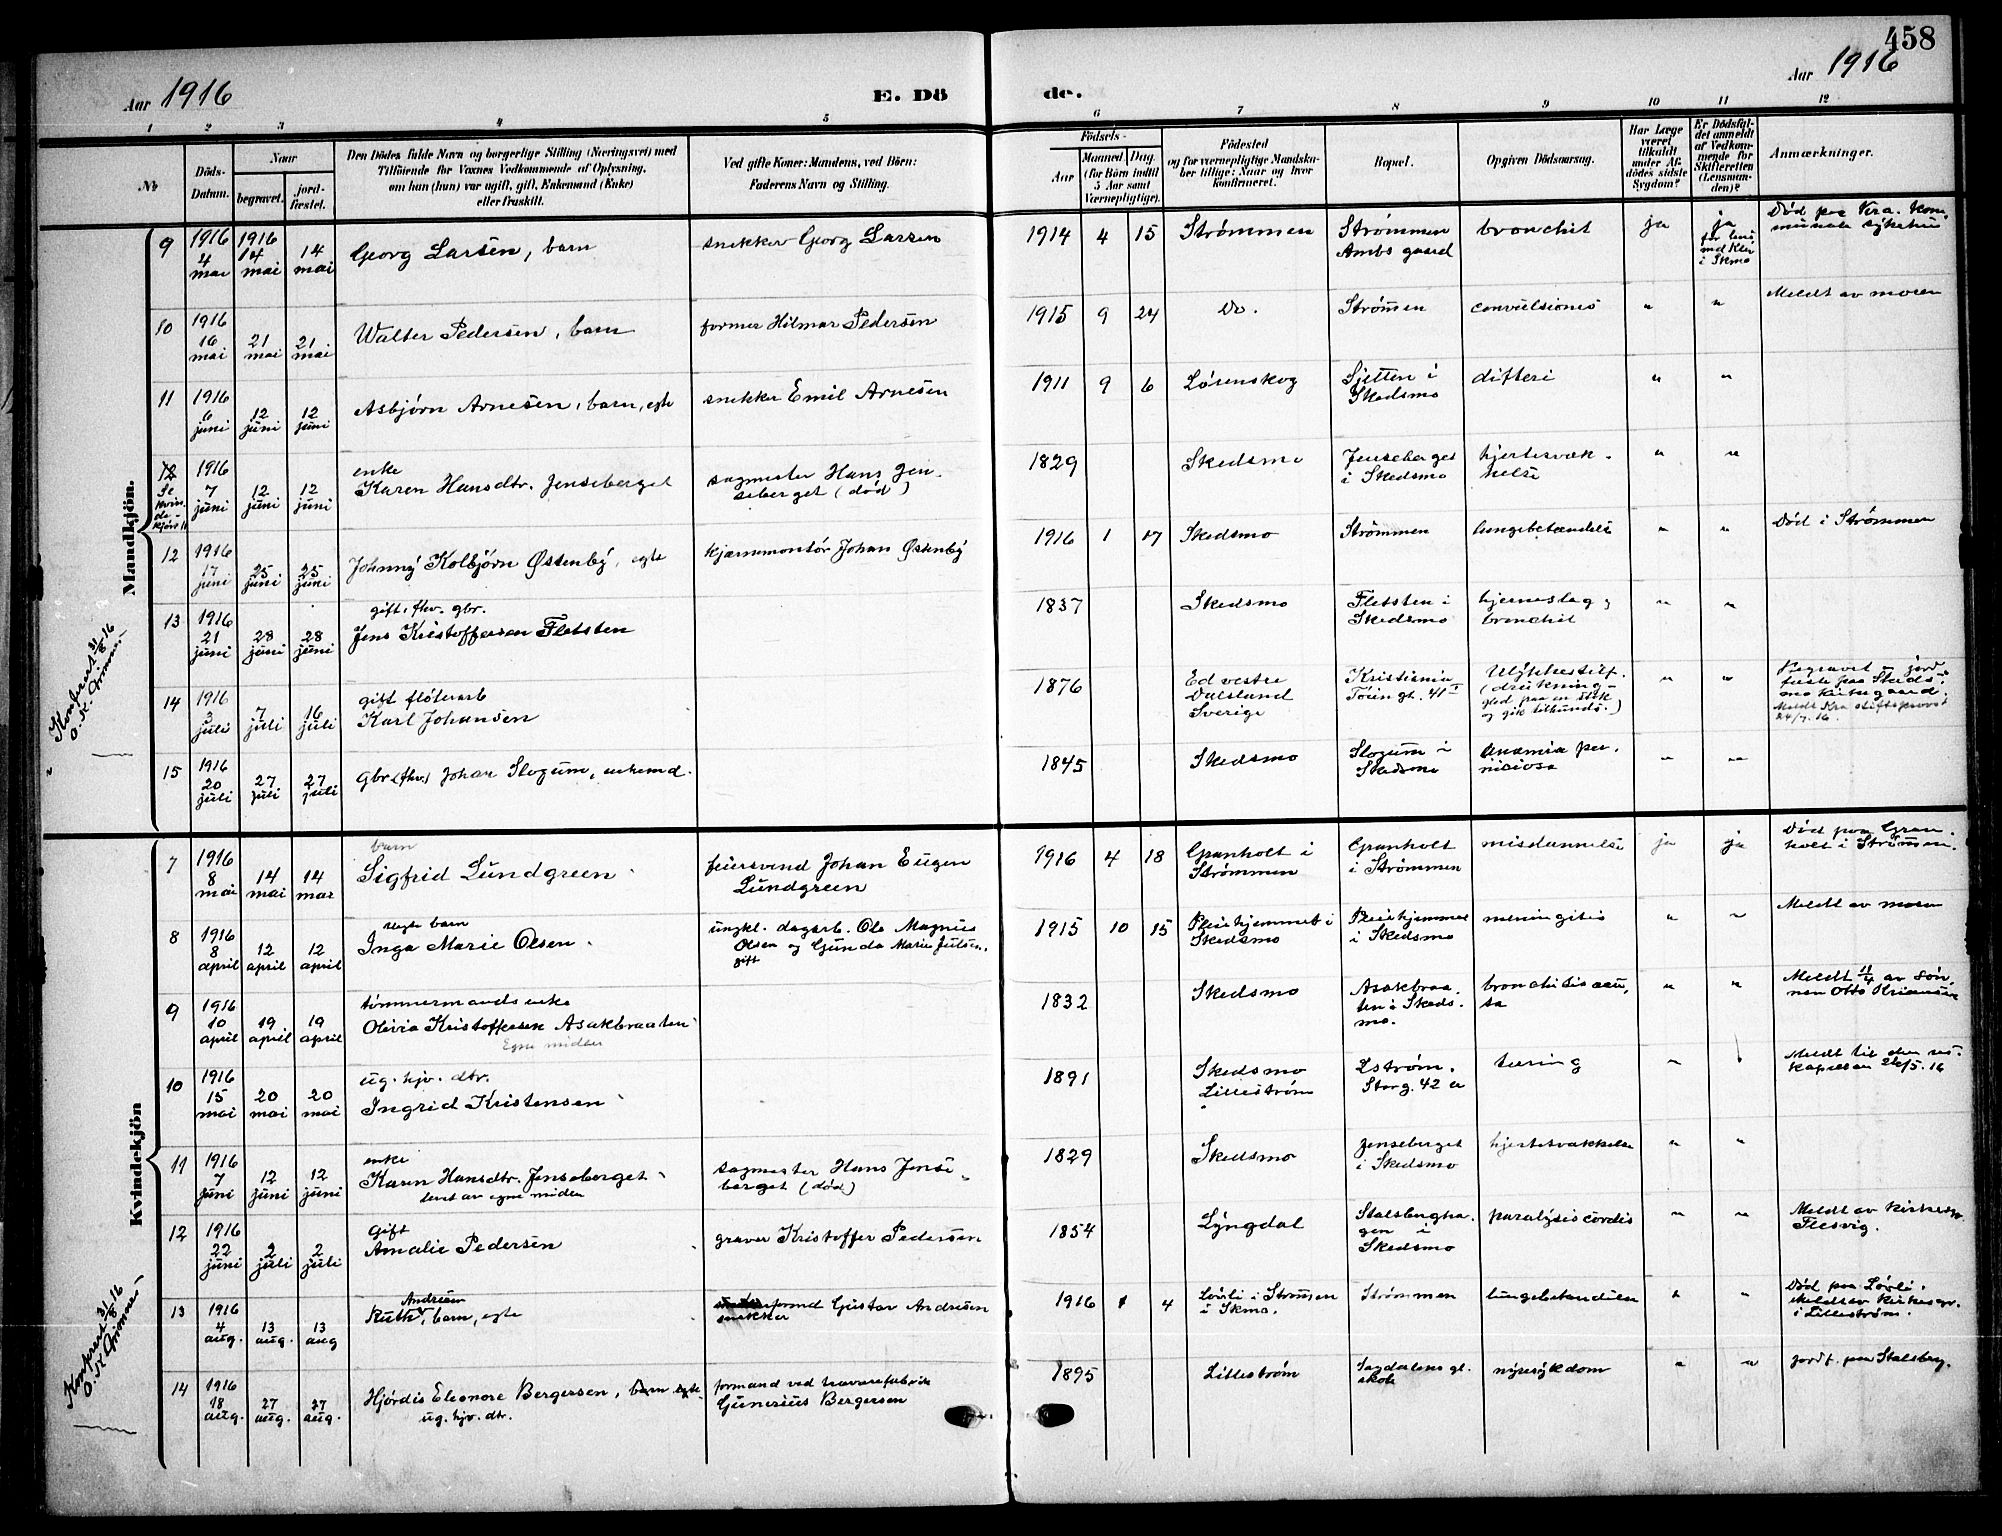 458
Aar 1916
E. Dö
de.
Aar 1916
1 2 3 4 5 6 7 8 9 10 11 12
No
Döds-Datum.
Naar
begravet.
jord-fæstet.
Den Dödes fulde Navn og borgerlige Stilling (Næringsvei) med
Tilföiende for Voxnes Vedkommende af Oplysning,
om han (hun) var ugift, gift, Enkemand (Enke)
eller fraskilt.
Ved gifte Koner: Mandens, ved Börn:
Faderens Navn og Stilling.
Födsels-
Aar
Maaned Dag.
(for Börn indtil
5 Aar samt
Værnepligtige).
Födested
og for værnepligtige Mandska-
ber tillige: Naar og hvor
konfirmeret.
Bopæl.
Opgiven Dödsaarsag.
Har Læge
været
tilkaldt
under Af-
dödes sidste
Sygdom?
Er Dödsfal-
det anmeldt
af Vedkom-
mende for
Skifteretten
(Lensman-
den)?
Anmærkninger.
Mandkjön.
9 1916 4 mai 1916 14 mai 14 mai Georg Larsen, barn snekker Georg Larsen 1914 4 15 Strømmen Strømmen bronchit ja ja Død paa Kra. kom.
munale sykehus
10 1916 16 mai 21 mai 21 mai Walter Pedersen, barn former Hilmar Pedersen 1915 9 24 Do. Strømen convulsiones " " Meldt av moren
11 1916 6 juni 12 juni 12 juni Asbjørn Arnesen, barn, egte snekker Emil Arnesen 1911 9 6 Lørenskog Sjetten i
Skedsmo difteri " "
12 Se kvindekjøn 11 1916 7 juni 12 juni 12 juni enke
Karen Hansdtr. Jenseberget sagmester Hans Jen-
seberget (død) 1829 Skedsmo Jenseberget
i Skedsmo hjertesvæk-
kelse " "
12 1916 17 juni 25 juni 25 juni Johnny Kolbjørn Østenby, egte kjernemontør Johan Østenby 1916 1 17 Skedsmo Strømmen lungebetændelse " " Død i Strømmen
13 1916 21 juni 28 juni 28 juni gift, fhv. gbr.
Jens Kristoffersen Fletsten 1837 Skedsmo Fletsten i
Skedsmo hjerneslag og
bronchit " "
14 1916 3 juli 7 juli 16 juli gift fløterarb
Karl Johansen 1876 Ed vestre
Dalsland
Sverige Kristiania
Tøieng t. 41 I Ulykkestilf.
(drukning -
gled paa en stok
og gik tilbunds.) " " Begravet og jord-
fæste paa Skeds-
mo kirkegaard.
Meldt Kra stiftsprovst
24/7. 16.
15 1916 20 juli 27 juli 27 juli gbr. (fhv.) Johan Slogum, enkemd. 1845 Skedsmo Slogum i
Skedsmo Anæmia per-
niciosa " "
Konferert 31/8 16
Kvindekjön
7 1916 8 mai 14 mai 14 mai barn
Sigfrid Lundgreen feiersvend Johan Eugen
Lundgreen 1916 4 18 Granholt i
Strømmen Granholt
i Strømmen misdannelse ja ja Død paa Gran-
holt i Strømen.
8 1916 8 april 12 april 12 april uegte barn
Inga Marie Olsen ungkl. dagarb. Ole Magnus
Olsen og Gunda Marie Julsen.
gift 1915 10 15 Pleiehjemmet i
Skedsmo Pleiehjemmet
i Skedsmo meningitis " " Meldt av moren
9 1916 10 april 19 april 19 april tømmermands enke
Olivia Kristoffersen Asakbraaten
Egne midler 1832 Skedsmo Asakbraa-
ten i Skeds-
mo. bronchitis acu-
ta " " Meldt 11/4 av søn-
nen Otto
10 1916 15 mai 20 mai 20 mai ug. hjv. dtr.
Ingrid Kristensen 1891 Skedsmo
Lillestrøm Lstrøm.
Storg. 42 a tæring " Meldt til den res.
kapellan 26/5. 16
11 1916 7 juni 12 juni 12 juni enke
Karen Hansdtr. Jenseberget
levet av egne midler sagmester Hans Jense
berget (død) 1829 Skedsmo Jenseberget
i Skedsmo hjertesvækkelse " "
12 1916 22 juni 2 juli 2 juli Gift
Amalie Pedersen graver Kristoffer Pedersen 1854 Lyngdal Stalsberghagen i
Skedsmo paralysis cordis " " Meldt av kirkesgr.
Flesvig.
13 1916 4 aug. 13 aug. 13 aug Andresen
Ruth, barn, egte formd Gustav Andresen
snekker 1916 4 Løvli i Strømen
i Skmo. Strømmen lungebetændelse " " Død paa Løvli.
Meldt av kirkesgr.
i Lillestrøm.
14 1916 18 aug. 27 aug. 27 aug. Hjørdis Eleonore Bergersen, barn egte
ug. hjv. dtr. formand ved travarefabrik
Gunerius Bergersen 1895 Lillestrøm Sagdalens gl.
skole nyresykdom " " jordf. paa Stalsberg.
Konferert 31/8 16